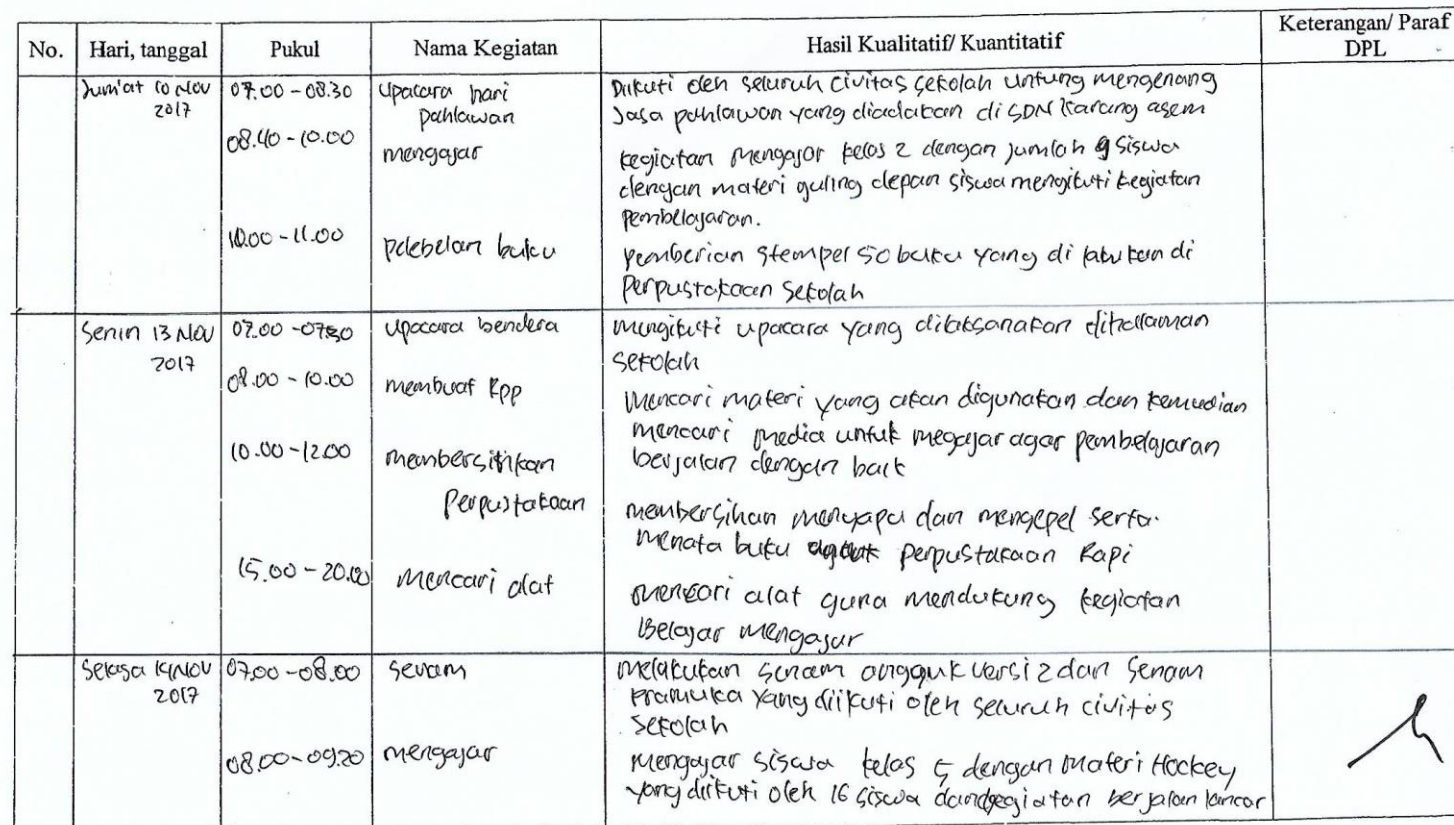 No. Hari, tanggal Pukul Nama Kegiatan Hasil Kualitatif/ Kuantitatif Keterangan/ Paraf DPL
Jum'at 10 Nov 2017
07.00 - 08.30
Upacara hari pahlawan
Diikuti oleh seluruh civitas sekolah untung mengenang
Jasa pahlawan yang diadakan di SDN Karang asem
08.40 - 10.00
mengajar
kegiatan mengajar kelas 2 dengan jumlah 9 siswa
dengan materi guling depan siswa mengikuti kegiatan
pembelajaran.
10.00 - 11.00
pelebelan buku
pemberian stempel 50 buku yang di lakukan di
Perpustakaan Sekolah
Senin 13 Nov 2017
07.00 - 07.30
Upacara bendera
mengikuti upacara yang dilaksanakan dihalaman
sekolah
08.00 - 10.00
membuat Rpp
Mencari materi yang akan digunakan dan kemudian
mencari media untuk megajar agar pembelajaran
berjalan dengan baik
10.00 - 12.00
membersihkan
Perpustakaan
membersihan menyapu dan mengepel serta
menata buku perpustakaan Rapi
15.00 - 20.00
Mencari alat
mencari alat guna mendukung kegiatan
Belajar mengajar
Selasa 14 Nov 2017
07.00 - 08.00
senam
melakukan senam angguk versi 2 dan senam
Pramuka yang diikuti oleh seluruh civitas
sekolah
08.00 - 09.20
mengajar
Mengajar siswa kelas 5 dengan materi Hockey
yang diikuti oleh 16 siswa dan kegiatan berjalan lancar